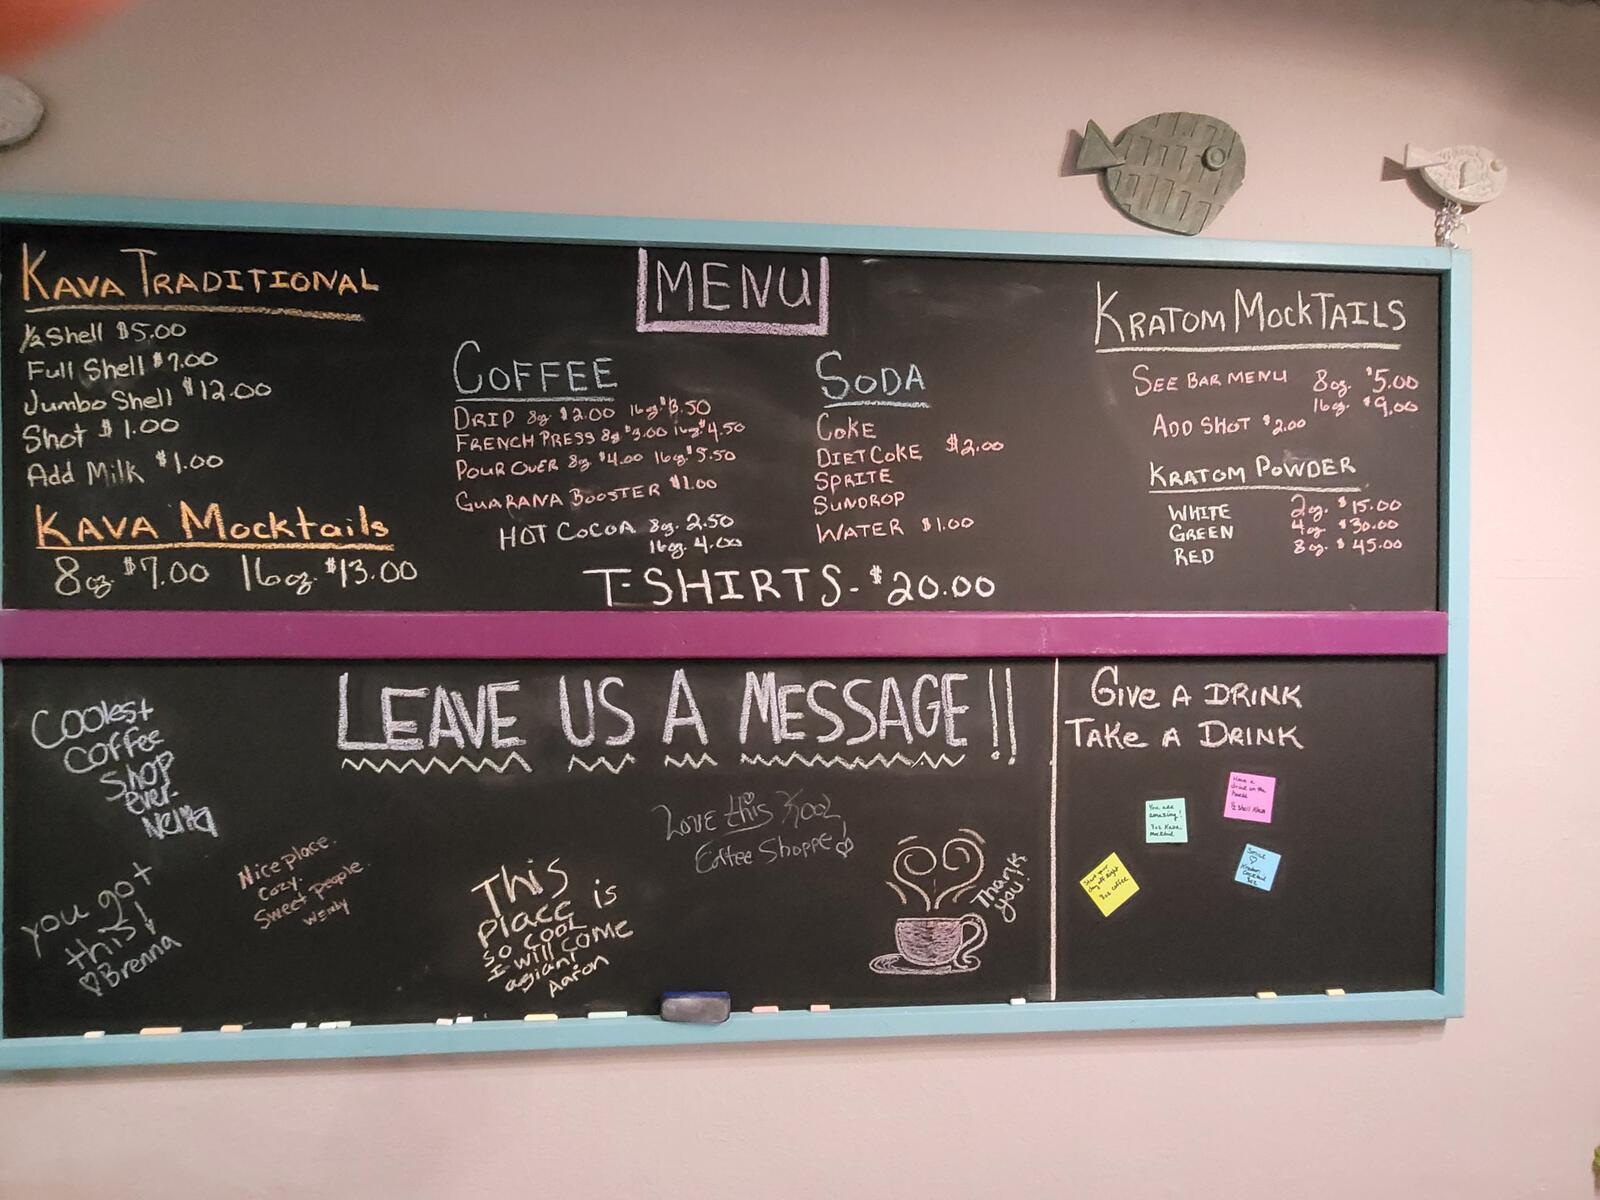 KAVA TRADITIONAL
½ Shell $5.00
Full Shell $7.00
Jumbo Shell $12.00
Shot $1.00
Add Milk $1.00
KAVA Mocktails
8oz. $7.00 16oz. $13.00
MENU
COFFEE
DRIP 8oz $2.00 16oz $3.50
FRENCH PRESS 8oz $3.00 16oz $4.50
POUR OVER 8oz $4.00 16oz $5.50
GUARANA BOOSTER $1.00
HOT COCOA 8oz. 2.50
16oz. 4.00
SODA
COKE
DIET COKE $2.00
SPRITE
SUNDROP
WATER $1.00
T-SHIRTS- $20.00
KRATOM MOCKTAILS
SEE BAR MENU 8oz. $5.00
16oz. $9.00
ADD SHOT $2.00
KRATOM POWDER
WHITE 2oz. $15.00
GREEN 4oz. $30.00
RED 8oz. $45.00
LEAVE US A MESSAGE!!
Coolest
Coffee
Shop
ever.
you got
this!
Brenna
Nice place.
Cozy.
Sweet people.
WENDY
This
place is
so cool
I will come
agian!
Aaron
Love this Kool
Coffee Shoppe!
Thank
you!
GIVE A DRINK
TAKE A DRINK
You are
amazing!
Kava
mocktail
Have a
drink on the
house
½ shell Kava
Smile
coffee